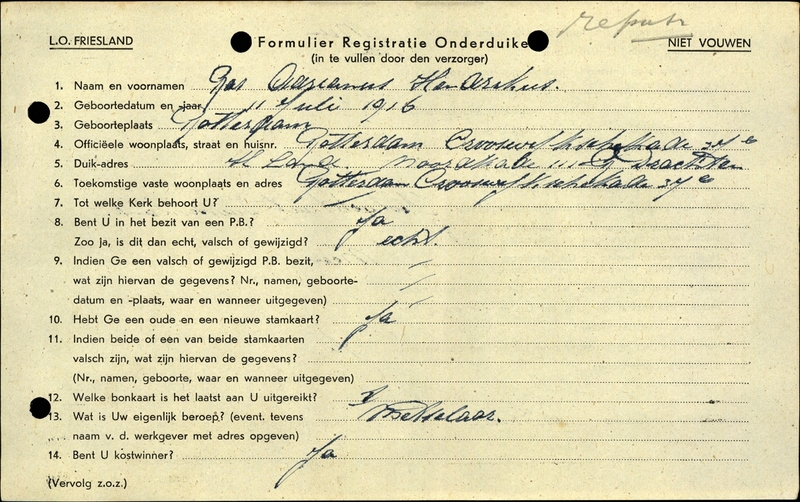 repatr
L.O. FRIESLAND
Formulier Registratie Onderduike
NIET VOUWEN
(in te vullen door den verzorger)
1. Naam en voornamen Bos Adrianus Hendrikus.
2. Geboortedatum en jaar 11 Juli 1916
3. Geboorteplaats Rotterdam
4. Officiëele woonplaats, straat en huisnr. Rotterdam Crooswijkschekade 37 c
5. Duik-adres Noordkade Drachten
6. Toekomstige vaste woonplaats en adres Rotterdam Crooswijkschekade 37 c
7. Tot welke Kerk behoort U?
8. Bent U in het bezit van een P.B.? Ja
Zoo ja, is dit dan echt, valsch of gewijzigd? echt.
9. Indien Ge een valsch of gewijzigd P.B. bezit,
wat zijn hiervan de gegevens? Nr., namen, geboorte-
datum en -plaats, waar en wanneer uitgegeven)
10. Hebt Ge een oude en een nieuwe stamkaart? Ja
11. Indien beide of een van beide stamkaarten
valsch zijn, wat zijn hiervan de gegevens?
(Nr., namen, geboorte, waar en wanneer uitgegeven)
12. Welke bonkaart is het laatst aan U uitgereikt?
13. Wat is Uw eigenlijk beroep? (event. tevens
naam v. d. werkgever met adres opgeven)
14. Bent U kostwinner? Ja
(Vervolg z.o.z.)